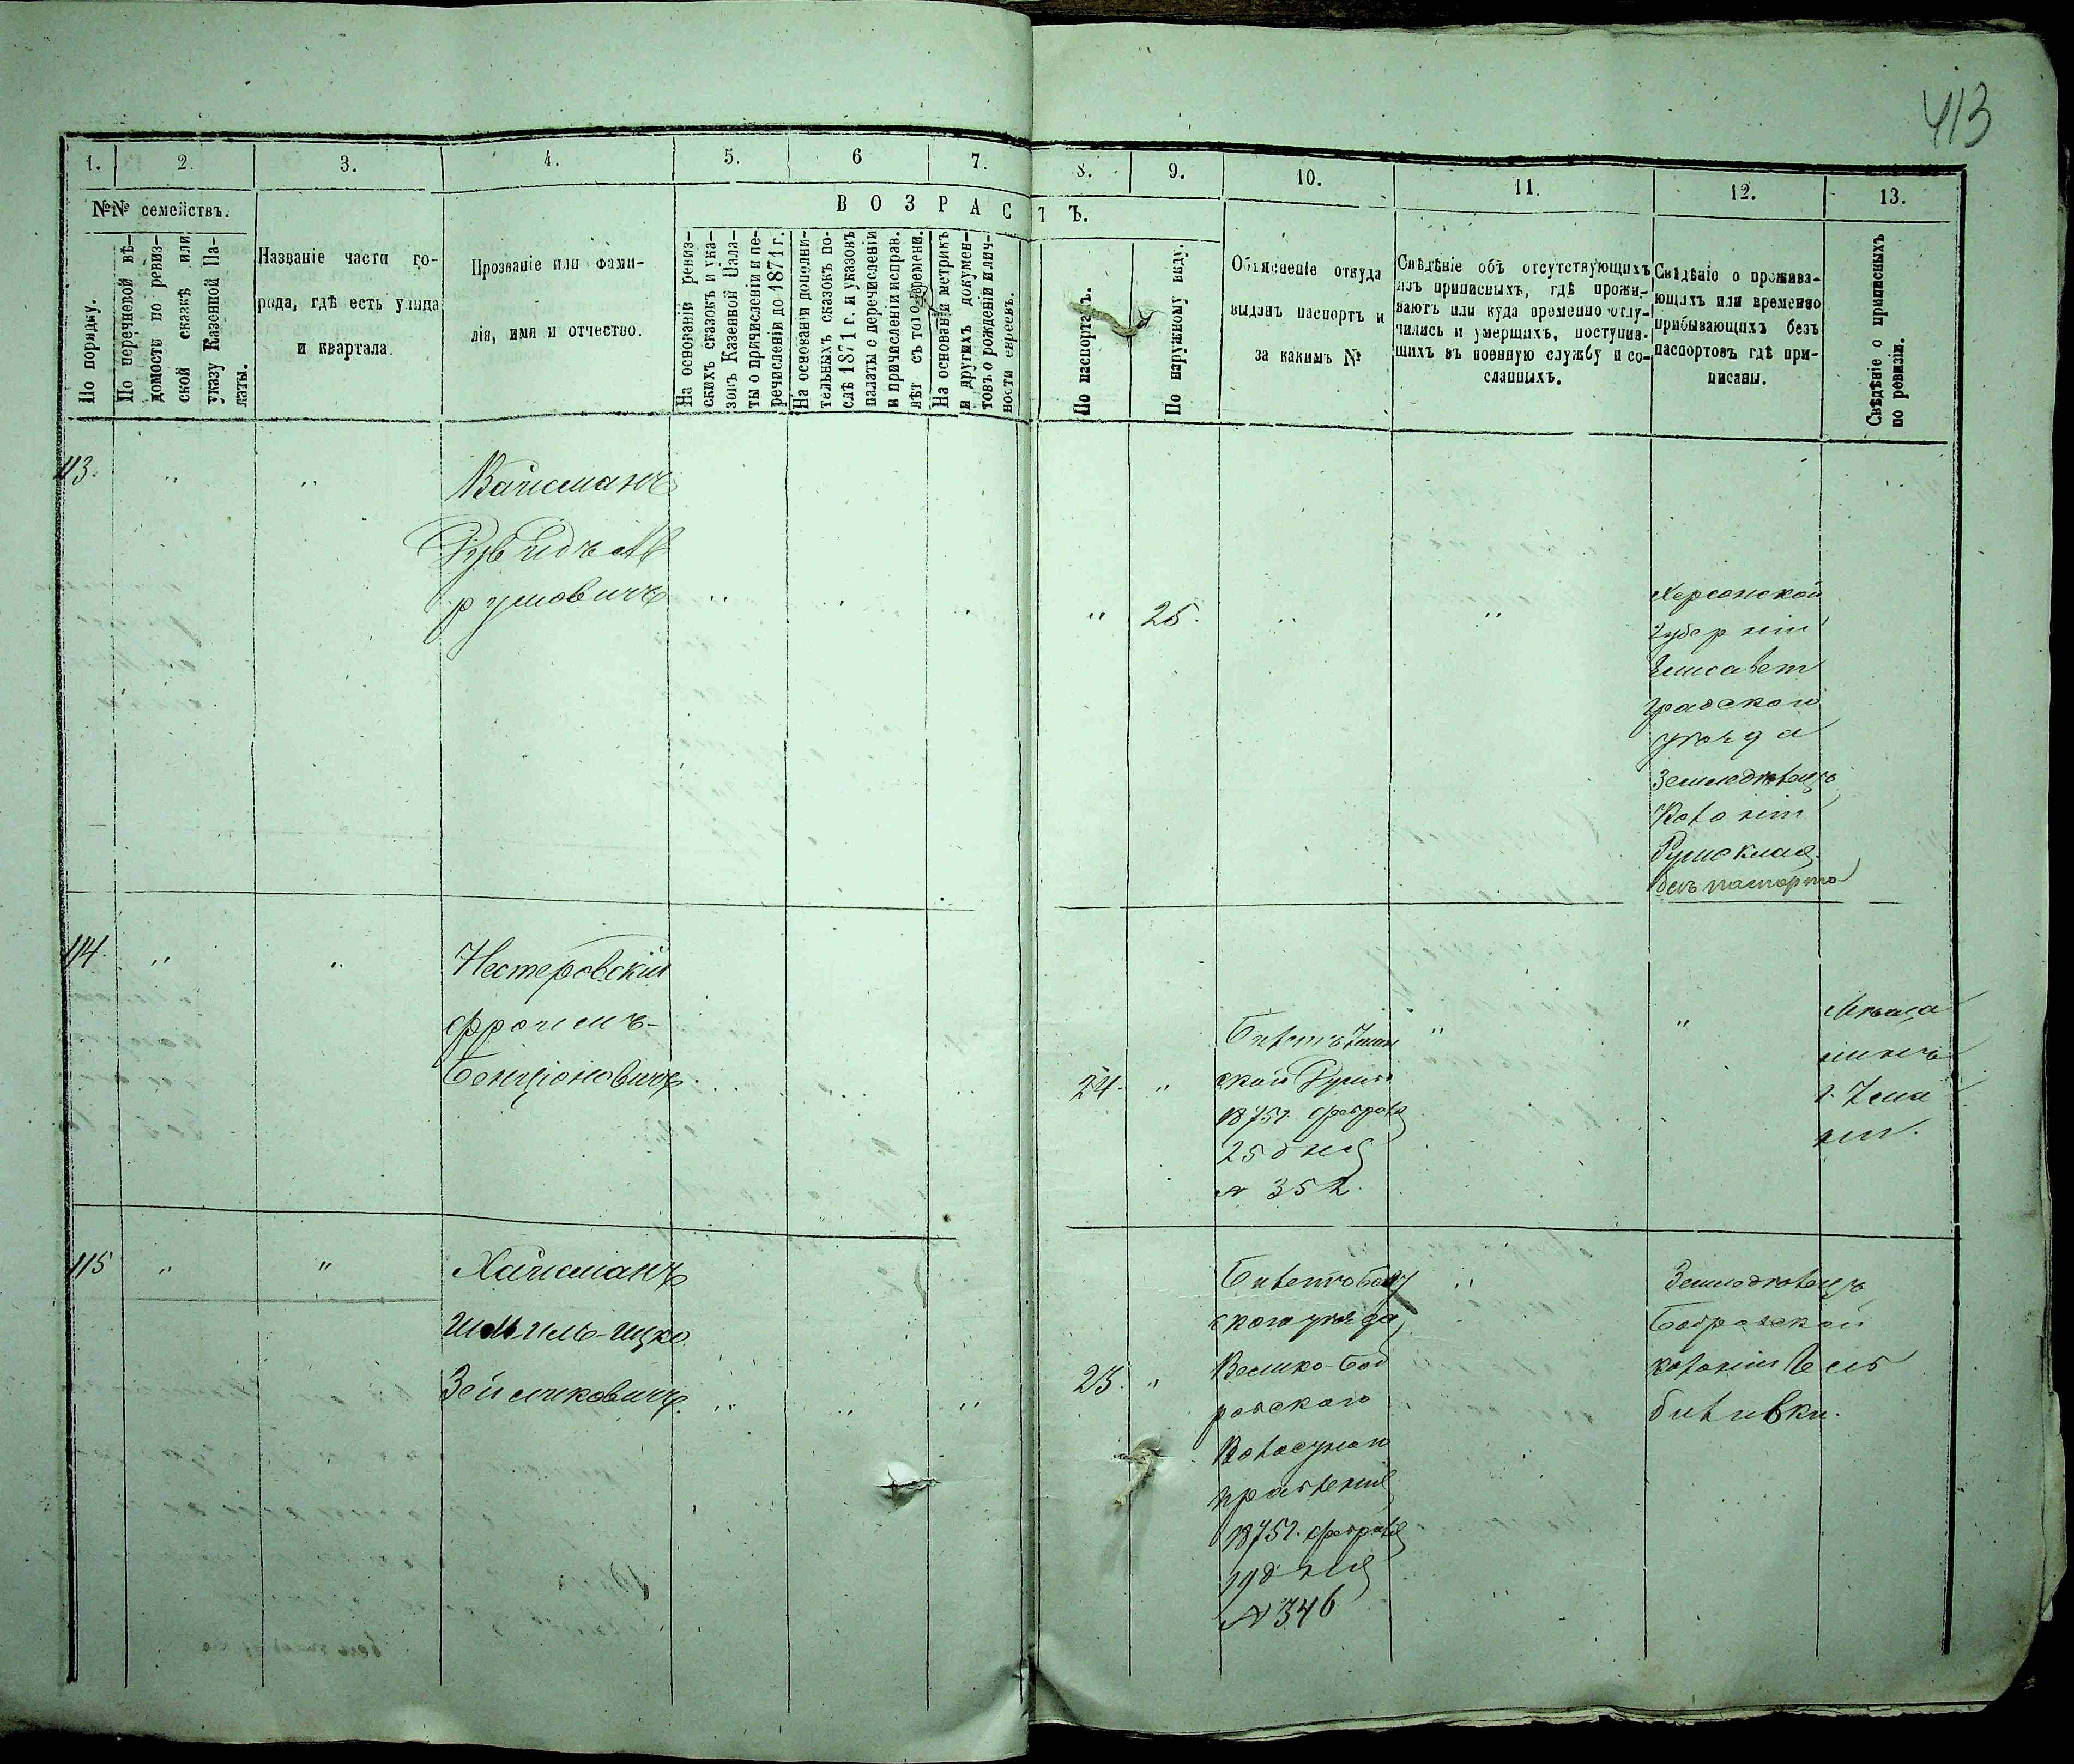 413
1. 2. 3. 4. 5. 6 7. 8. 9. 10. 11. 12. 13.
№№ семействъ.
По порядку.
По перечневой вѣ-
домости по ревиз-
ской сказкѣ или
указу Казенной Па-
латы.
Названіе части го-
рода, гдѣ есть улица
и квартала.
Прозваніе или фами-
лія, имя и отчество.
ВОЗРАСТЪ.
На основаніи ревиз-
скихъ сказокъ и ука-
зовъ Казенной Пала-
ты о причисленіи и пе-
речисленіи до 1871 г.
На основаніи дополни-
тельныхъ сказокъ по-
слѣ 1871 г. и указовъ
палаты о перечисленіи
и причисленіи исправ.
лѣт съ того времени.
На основаніи метрикъ
и другихъ докумен-
товъ о рожденіи и лич-
ности евреевъ.
По паспортамъ.
По наружному виду.
Объясненіе откуда
выданъ паспортъ и
за какимъ №
Свѣдѣніе объ отсутствующихъ
изъ приписныхъ, гдѣ прожи-
ваютъ или куда временно отлу-
чились и умершихъ, поступив-
шихъ въ военную службу и со-
сланныхъ.
Свѣдѣніе о прожива-
ющихъ или временно
прибывающихъ безъ
паспортовъ гдѣ при-
писаны.
Свѣдѣніе о приписныхъ
по ревизіи.
113. " "
Вайсманъ
Аврумовичъ " " " " 25. " "
Херсонской
губерніи
Елисавет
градскаго
уѣзда
Земледѣлецъ
Колоніи
безъ паспорта
114. " "
Нестеровскій
Фроимъ-
Бенціоновичъ " " " 24. "
Билетъ Уман
ской Думы
1875 г. Февраля
25 дня
№ 352.
" "
Мѣща
нинъ
г. Ума
ни.
115 " "
Хайсманъ
Шмиль-Ицко
Зейликовичъ " " " 25. "
Билетъ Балт
скаго уѣзда
Велико-Боб
ровскаго
Волостнаго
правленія
1875 г. Февраля
19 дня
№ 346
"
Земледѣлецъ
Бобровской
колоніи